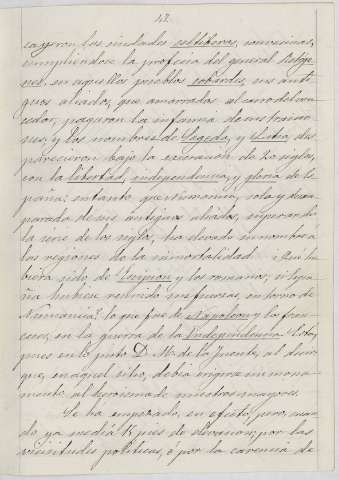 42.
cayeron las ciudades celtíberas, convecinas,
cumpliéndose la profecía del general Retóge-
nes, en aquellos pueblos cobardes, sus anti-
guos aliados, que amarrados al carro del ven-
cedor, pagaron la infamia de sus traicio-
nes; y los nombres de Segeda, y Lutia, des-
parecieron bajo la execración de 20 siglos,
con la libertad, independencia, y gloria de Es-
paña; en tanto que Numancia, sola y desam-
parada de sus antiguos aliados, superando
la serie de los siglos, ha elevado su nombre a
las regiones de la inmortalidad. ¿Que hu-
biera sido de Escipion y los romanos, si Espa-
ña hubiese reunido sus fuerzas, en torno de
Numancia? lo que fue de Napoleon y los fran-
ceses, en la guerra de la Independencia. Esta,
pues en lo justo D. M. de la Fuente, al decir
que, en aquel sitio, debía erigirse un monu-
mento al heroismo de nuestros mayores.
Se ha empezado, en efecto; pero, cuan-
do ya media 15 pies de elevacion; por las
vicisitudes politicas, ó por la carencia de